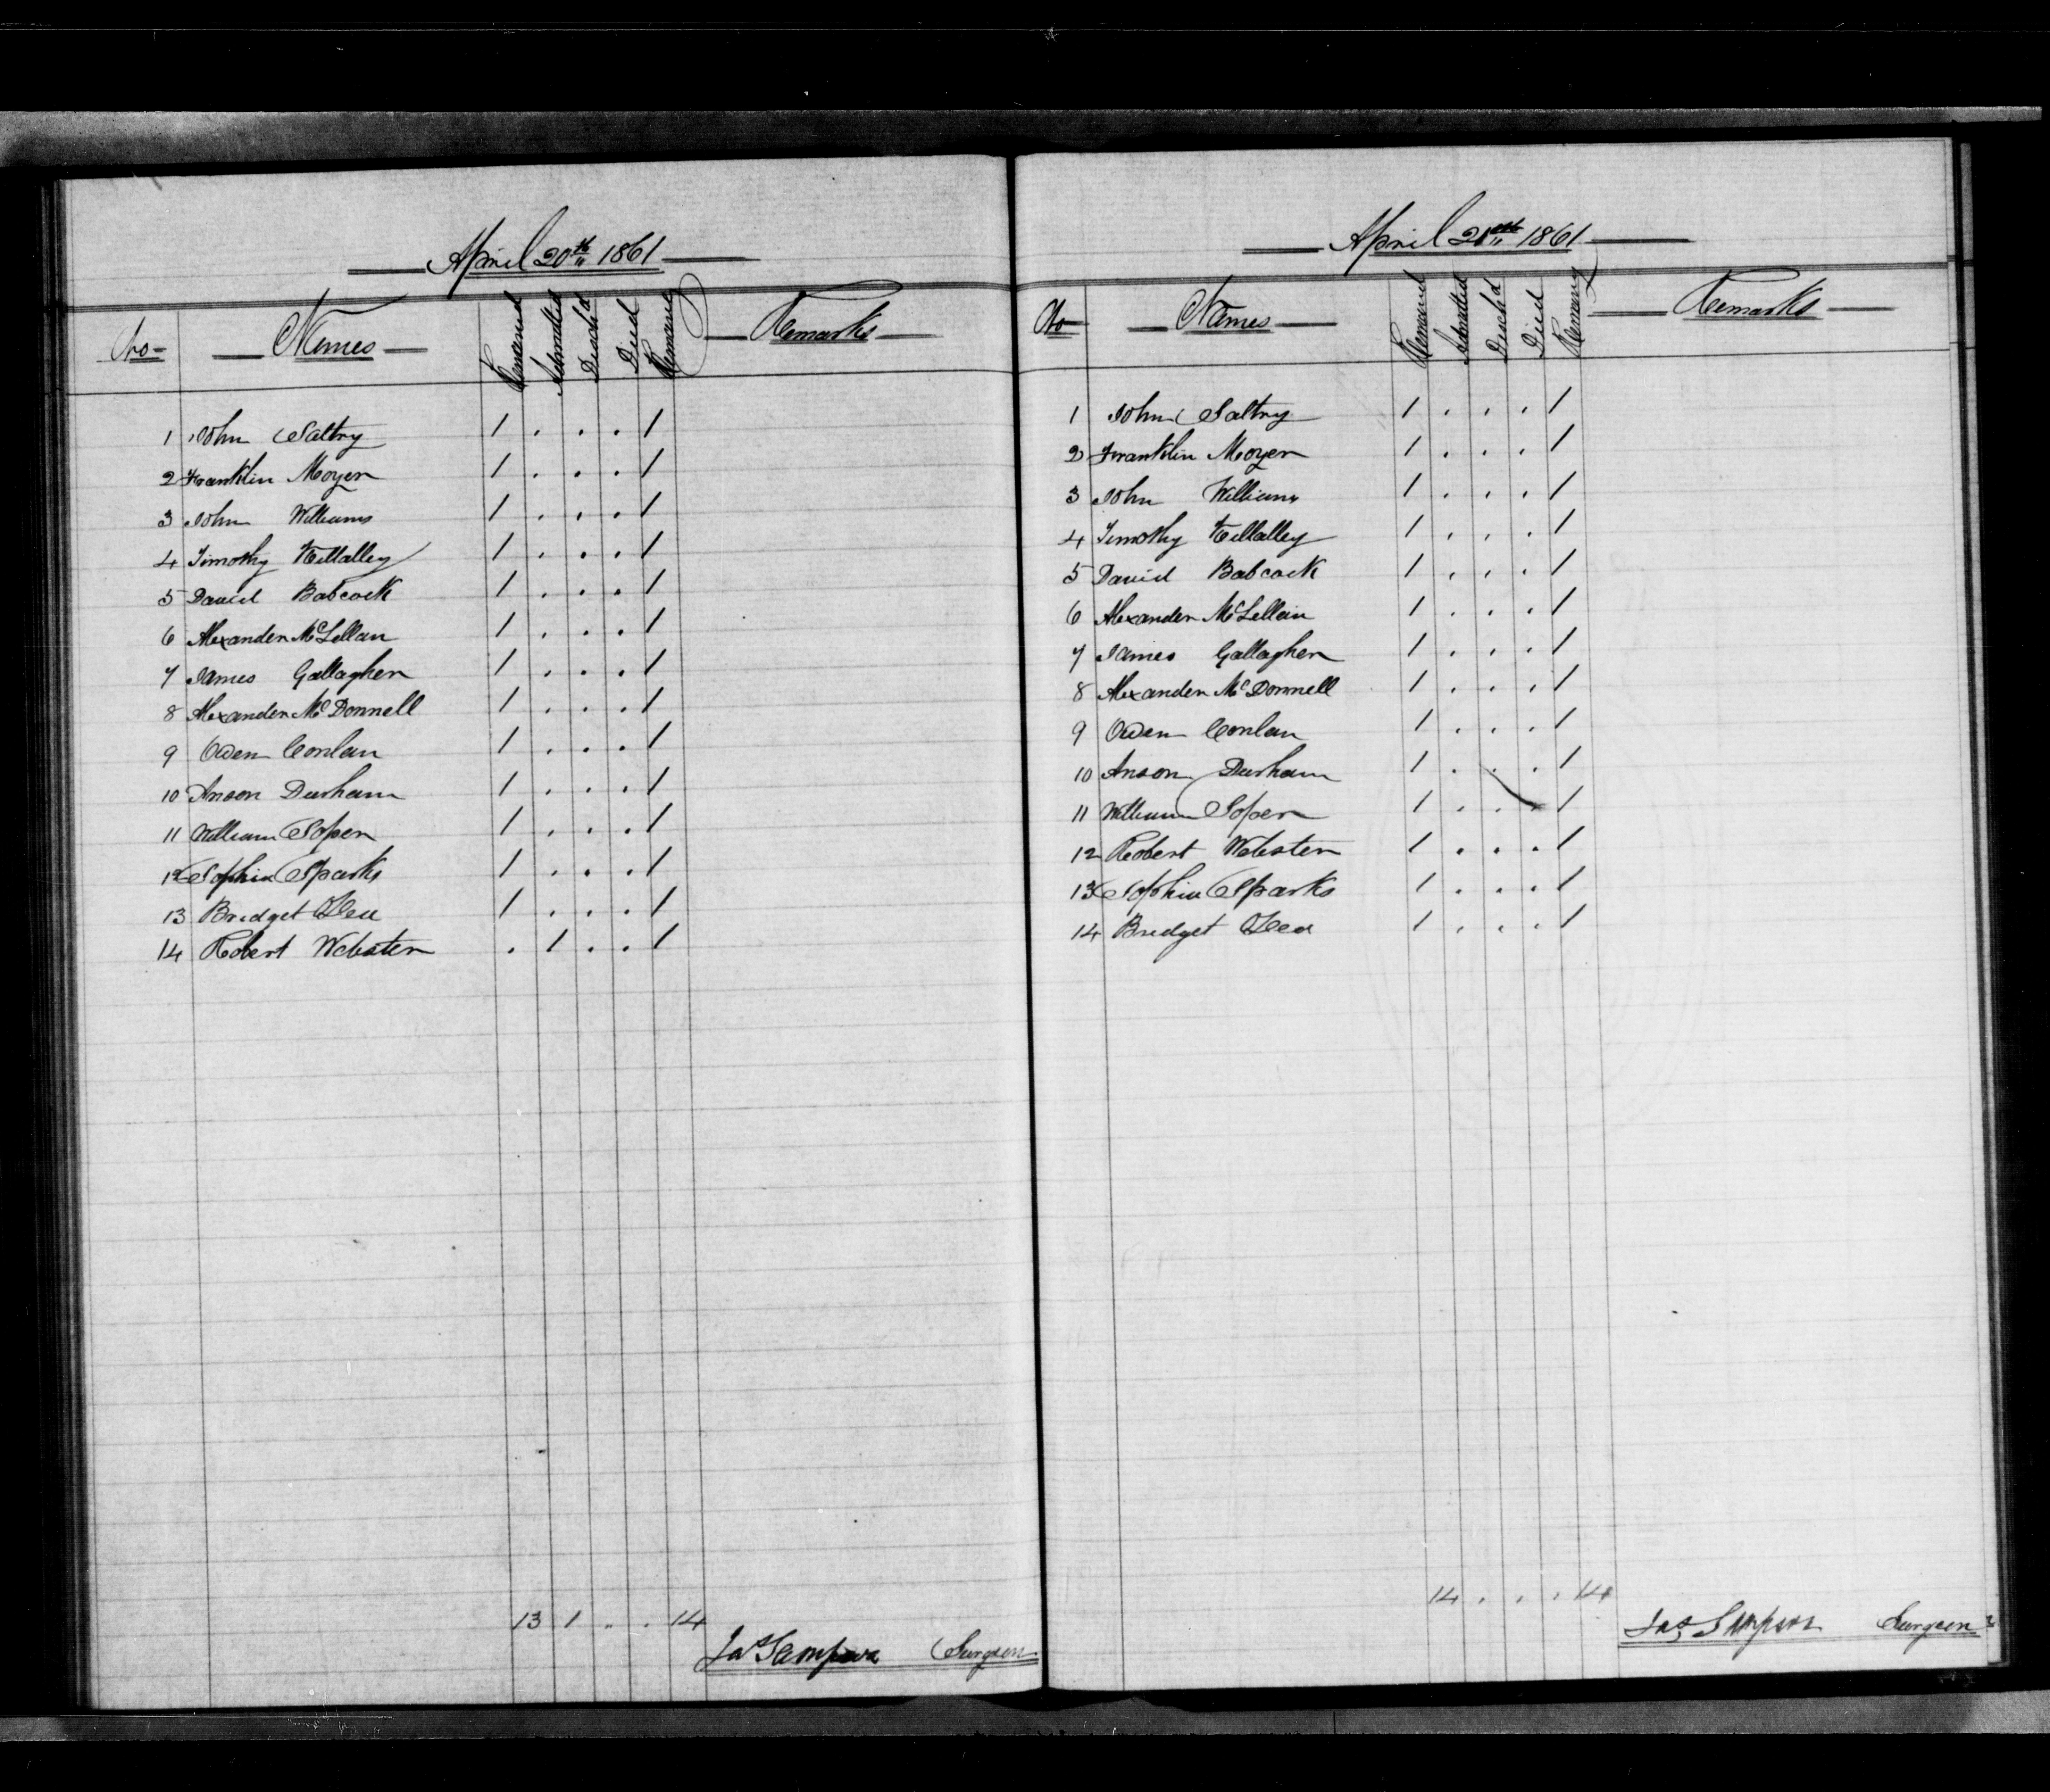 April 20th 1861
No Names Remained Admitted Disch'd Died Remaing Remarks
1 John Saltry 1 . . . 1
2 Franklin Moyer 1 . . . 1
3 John Williams 1 . . . 1
4 Timothy 1 . . . 1
5 David Babcock 1 . . . 1
6 Alexander McLellan 1 . . . 1
7 James Gallagher 1 . . . 1
8 Alexander McDonnell 1 . . . 1
9 Owen Conlan 1 . . . 1
10 Anson Durham 1 . . . 1
11 William Soper 1 . . . 1
12 Sophia Sparks 1 . . . 1
13 Bridget 1 . . . 1
14 Robert Webster . 1 . . 1
13 1 . . 14
Jas Sampson Surgeon
April 21st 1861
No Names Remained Admitted Disch'd Died Remaing Remarks
1 John Saltry 1 . . . 1
2 Franklin Moyer 1 . . . 1
3 John Williams 1 . . . 1
4 Timothy 1 . . . 1
5 David Babcock 1 . . . 1
6 Alexander McLellan 1 . . . 1
7 James Gallagher 1 . . . 1
8 Alexander McDonnell 1 . . . 1
9 Owen Conlan 1 . . . 1
10 Anson Durham 1 . . . 1
11 William Soper 1 . . . 1
12 Robert Webster 1 . . . 1
13 Sophia Sparks 1 . . . 1
14 Bridget 1 . . . 1
14 . . . 14
Jas Sampson Surgeon